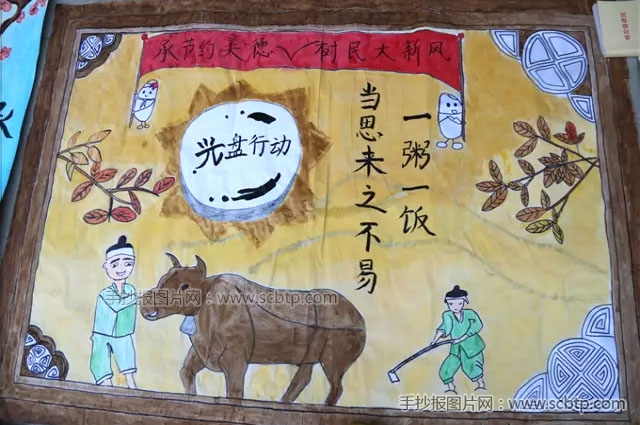 承节约美德 树民大新风
光盘行动
一粥一饭
当思来之不易
手抄报图片网：www.scbtp.com
手抄报图片网：www.scbtp.com